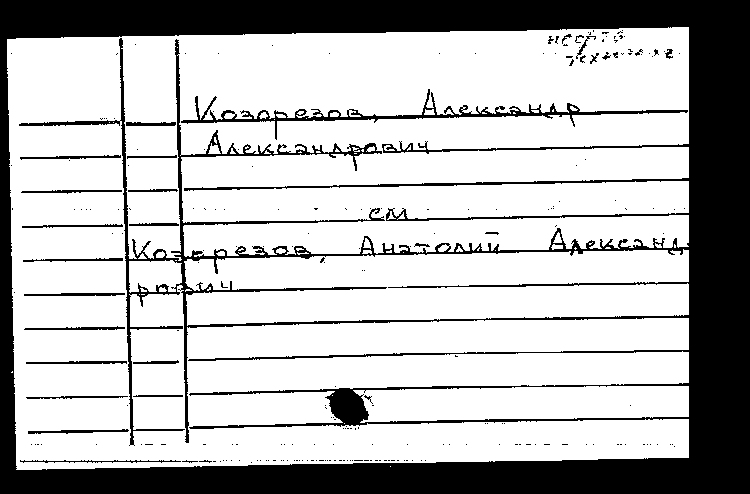 Козорезов, Александр
Александрович
см.
Козорезов, Анатолий Александ-
рович